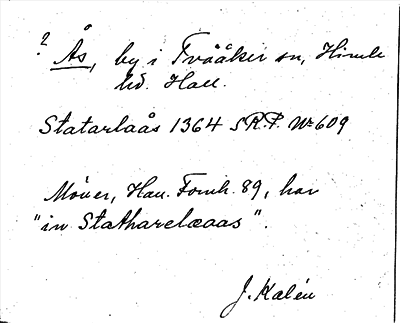 ?
Ås, by i Tvååker sn, Himle
hd. Hall.
Statarlaås 1364 SRP. No 609
Möller, Hall. Fornh. 89, har
"in Statharelæaas".
J. Kalén